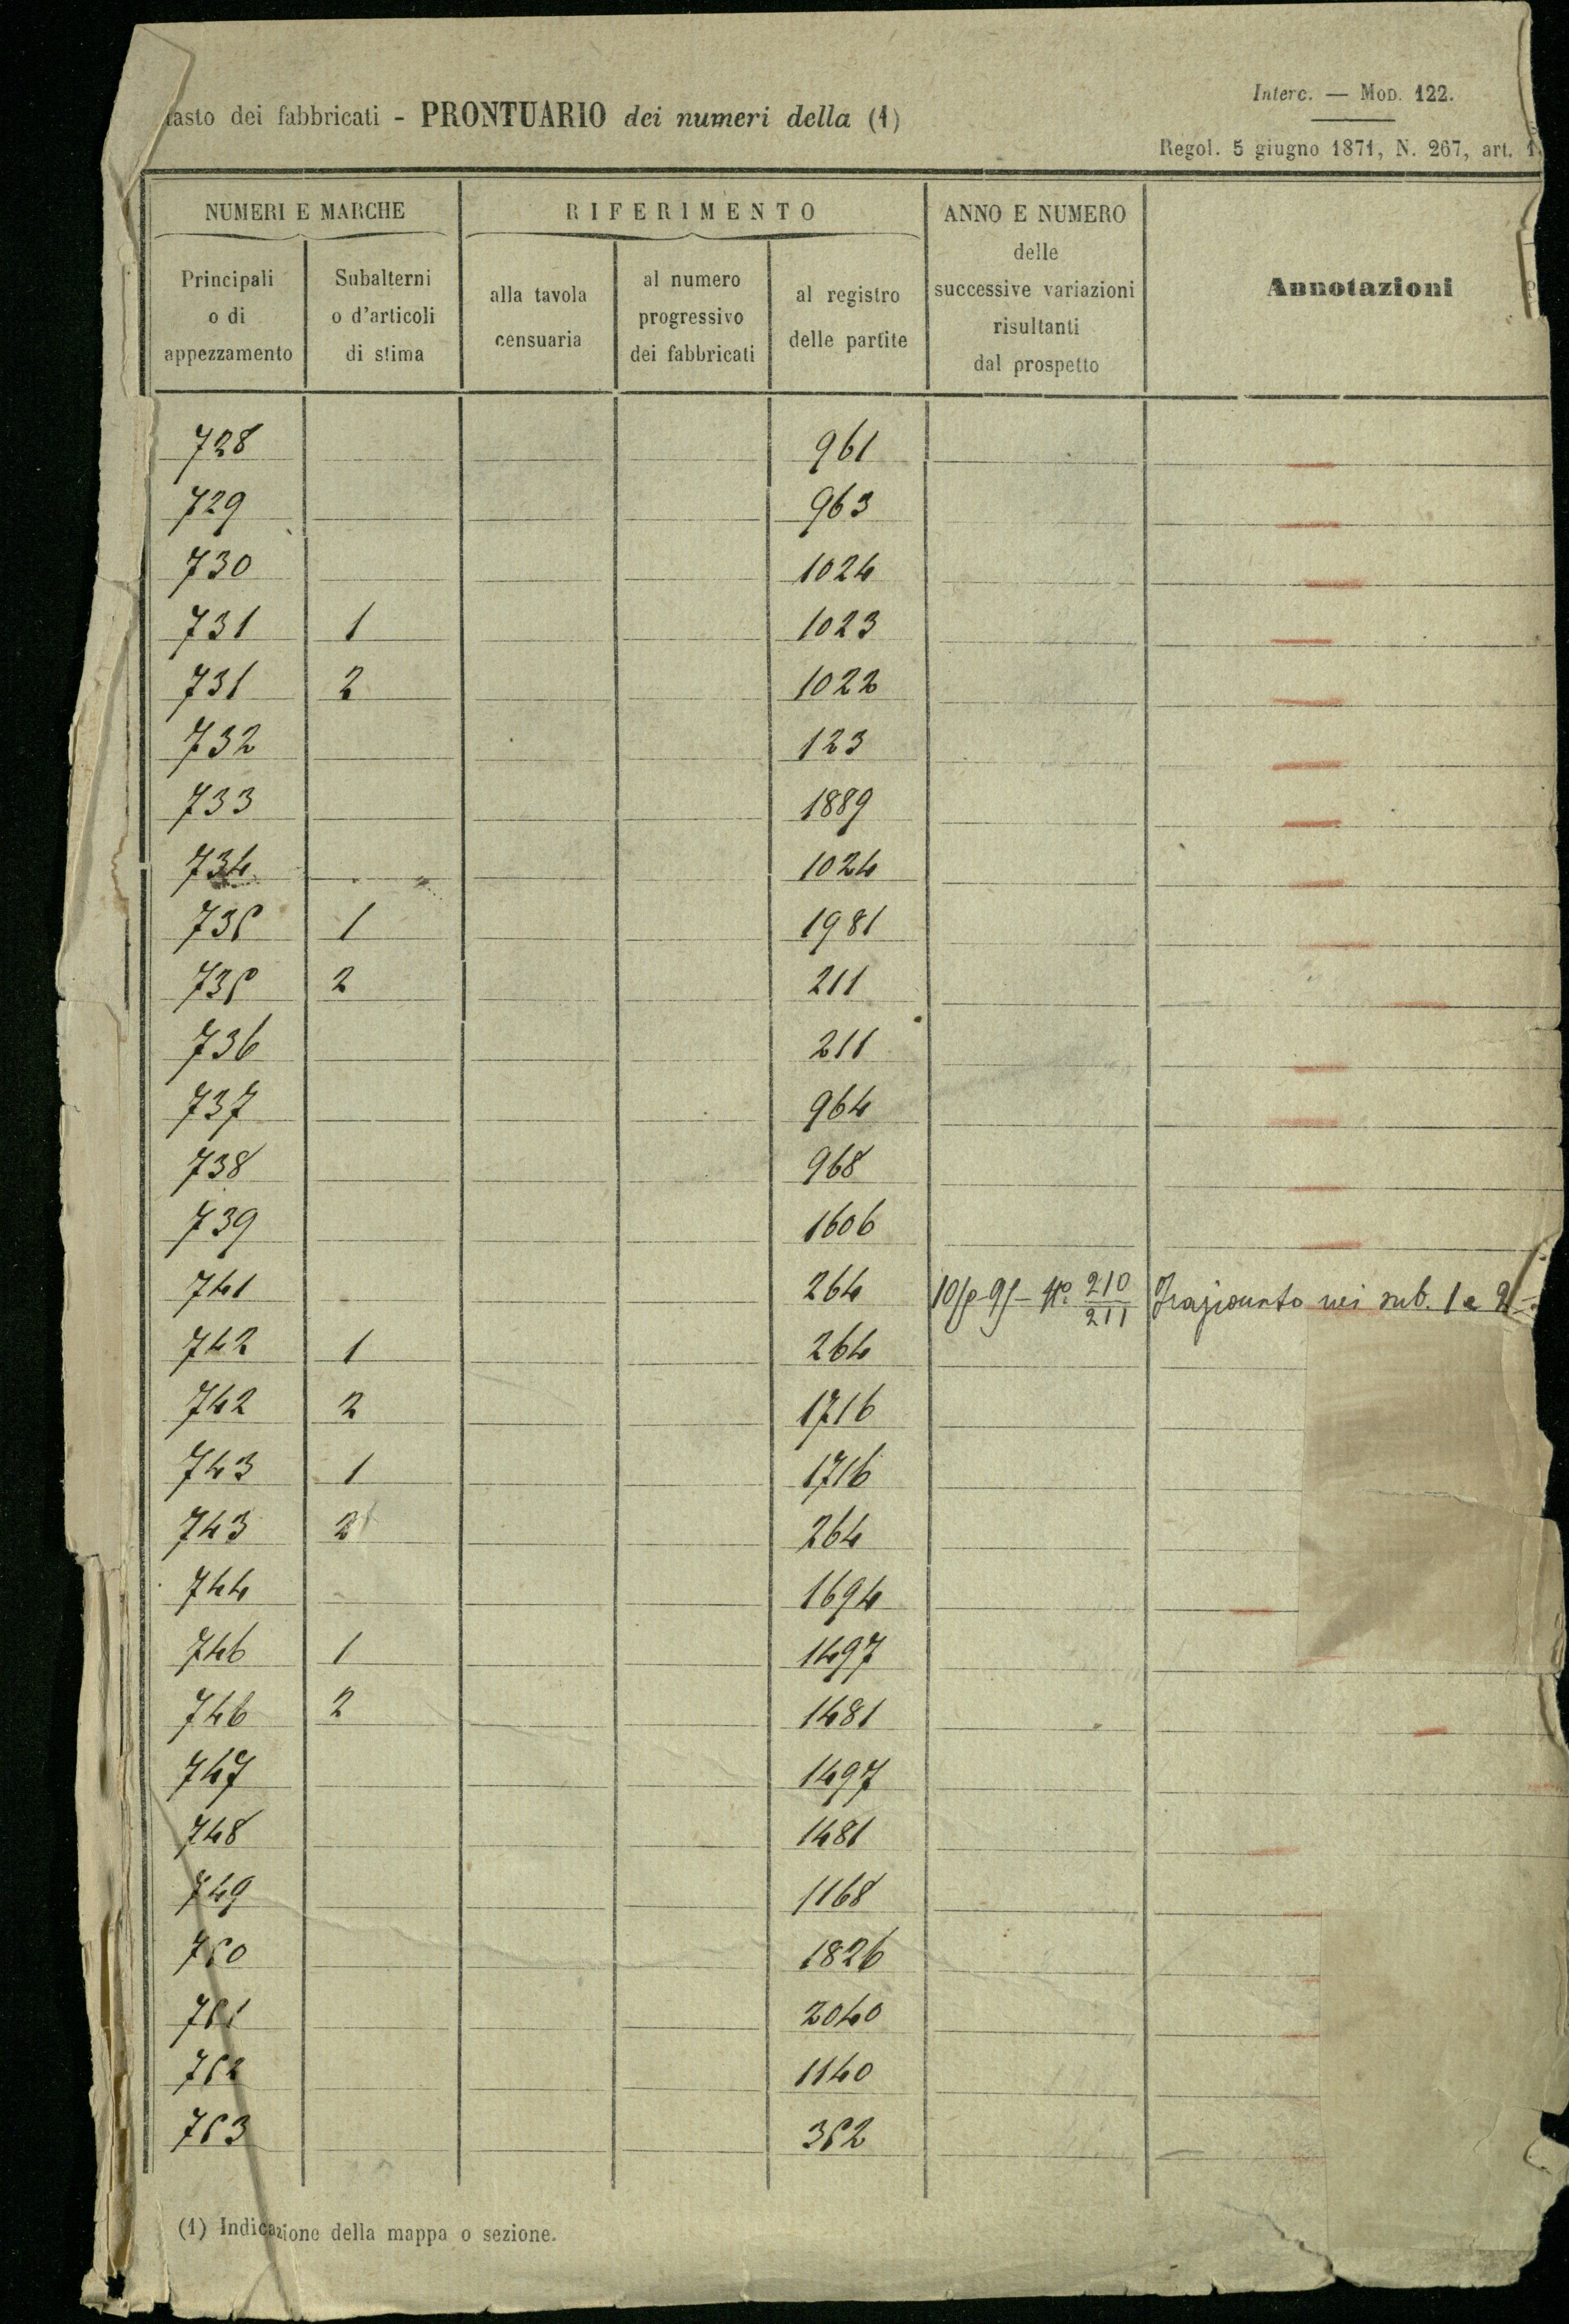 tasto dei fabbricati - PRONTUARIO dei numeri della (1)
Interc. — Mod. 122.
Regol. 5 giugno 1871, N. 267, art. 1
NUMERI E MARCHE
RIFERIMENTO
ANNO E NUMERO
delle
successive variazioni
risultanti
dal prospetto
Annotazioni
Principali
o di
appezzamento
Subalterni
o d'articoli
di stima
alla tavola
censuaria
al numero
progressivo
dei fabbricati
al registro
delle partite
728 961
729 963
730 1024
731 1 1023
731 2 1022
732 123
733 1889
734 1024
735 1 1981
735 2 211
736 211
737 964
738 968
739 1606
741 264 No. 210/211 Frazionato nei sub. 1 e 2
742 1 264
742 2 1716
743 1 1716
743 2 264
744 1694
746 1 1497
746 2 1481
747 1497
748 1481
749 1168
750 1826
751 2040
752 1140
753 352
(1) Indicazione della mappa o sezione.